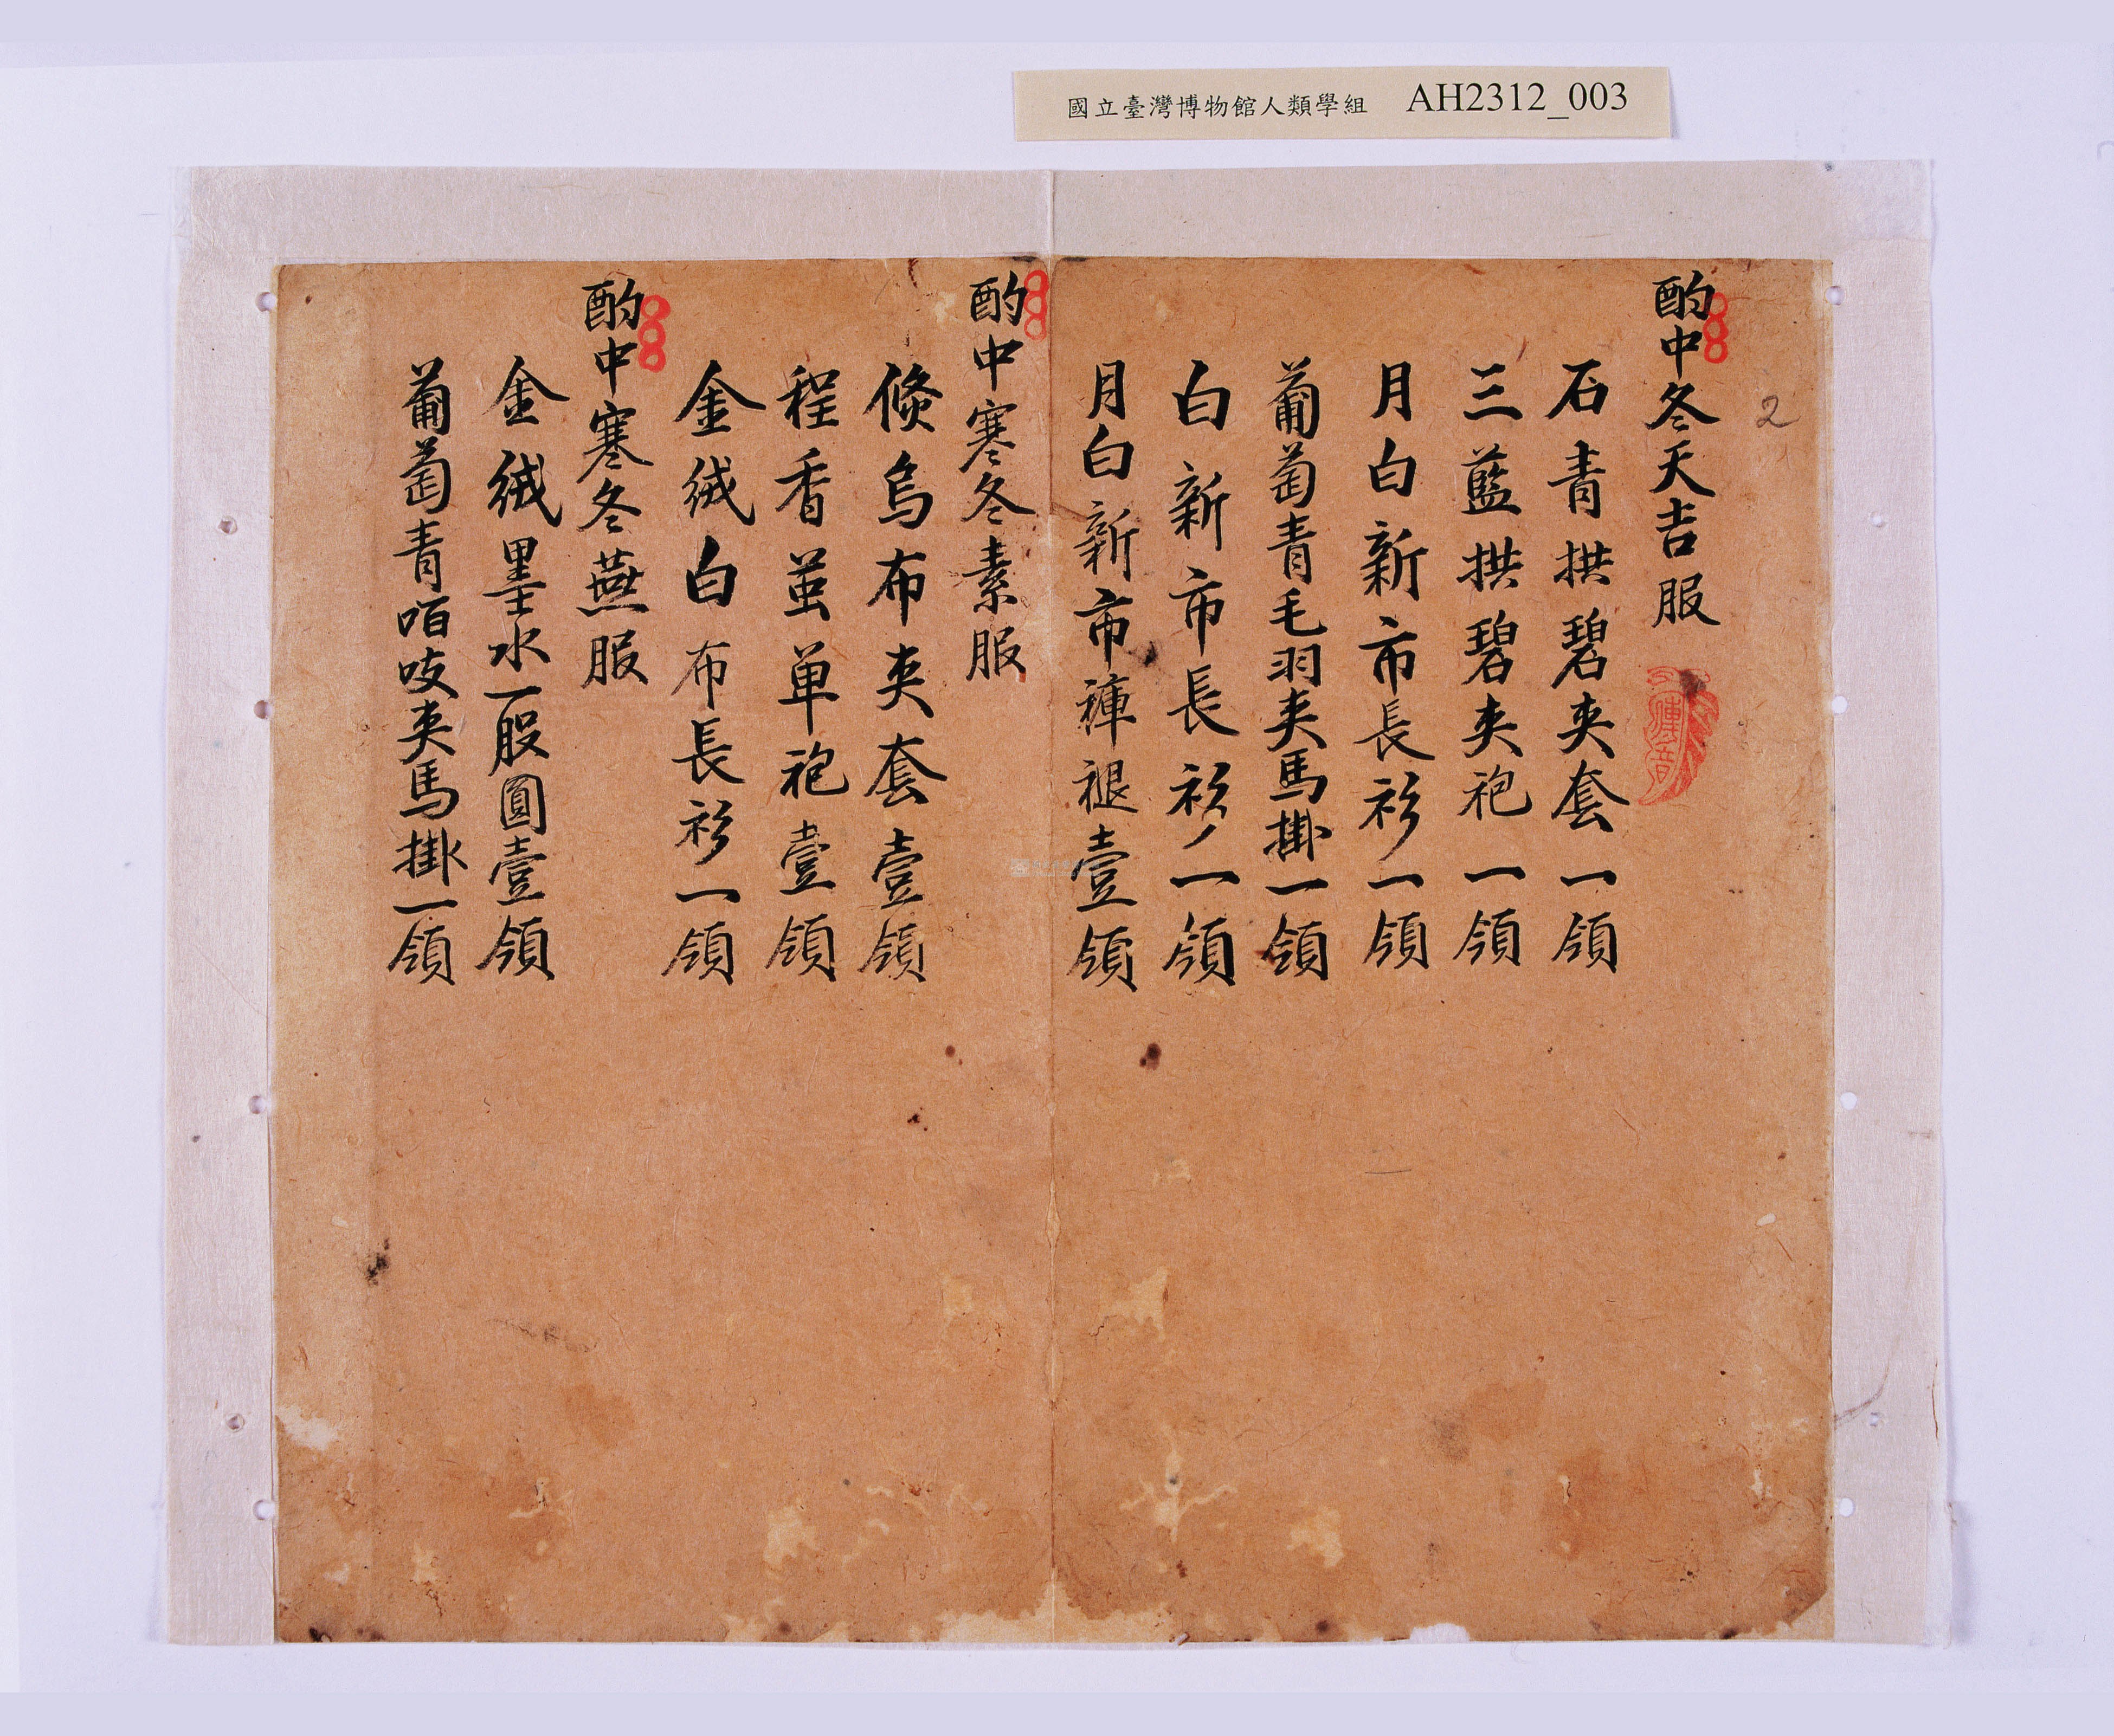 國立臺灣博物館人類學組 AH2312_003
2
酌中冬天吉服
石青拱碧夾套一領
三藍拱碧夾袍一領
月白新市長衫一領
葡萄青毛羽夾馬掛一領
白新市長衫一領
月白新市褲褪壹領
酌中寒冬素服
倏烏布夾套壹領
程香茧单袍壹領
金絨白布長衫一領
酌中寒冬燕服
金絨墨水一股圓壹領
葡萄青咟吱夾馬掛一領